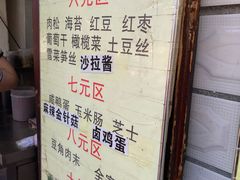 六元区
肉松 海苔 红豆 红枣
葡萄干 橄榄菜 土豆丝
雪菜笋丝 沙拉酱
七元区
咸鸭蛋 玉米肠 芝士
麻辣金针菇 卤鸡蛋
八元区
豆角肉末